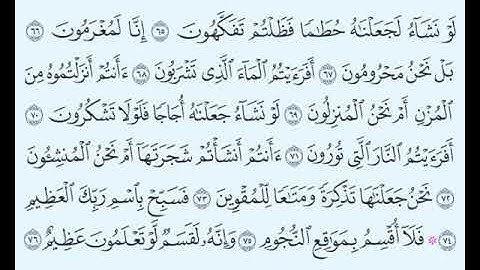 لَوْ نَشَآءُ لَجَعَلْنَٰهُ حُطَٰمًا فَظَلْتُمْ تَفَكَّهُونَ ٦٥ إِنَّا لَمُغْرَمُونَ ٦٦
بَلْ نَحْنُ مَحْرُومُونَ ٦٧ أَفَرَءَيْتُمُ ٱلْمَآءَ ٱلَّذِى تَشْرَبُونَ ٦٨ ءَأَنتُمْ أَنزَلْتُمُوهُ مِنَ
ٱلْمُزْنِ أَمْ نَحْنُ ٱلْمُنزِلُونَ ٦٩ لَوْ نَشَآءُ جَعَلْنَٰهُ أُجَاجًا فَلَوْلَا تَشْكُرُونَ ٧٠
أَفَرَءَيْتُمُ ٱلنَّارَ ٱلَّتِى تُورُونَ ٧١ ءَأَنتُمْ أَنشَأْتُمْ شَجَرَتَهَآ أَمْ نَحْنُ ٱلْمُنشِـُٔونَ
٧٢ نَحْنُ جَعَلْنَٰهَا تَذْكِرَةً وَمَتَٰعًا لِّلْمُقْوِينَ ٧٣ فَسَبِّحْ بِٱسْمِ رَبِّكَ ٱلْعَظِيمِ
٧٤ ۞ فَلَآ أُقْسِمُ بِمَوَٰقِعِ ٱلنُّجُومِ ٧٥ وَإِنَّهُۥ لَقَسَمٌ لَّوْ تَعْلَمُونَ عَظِيمٌ ٧٦